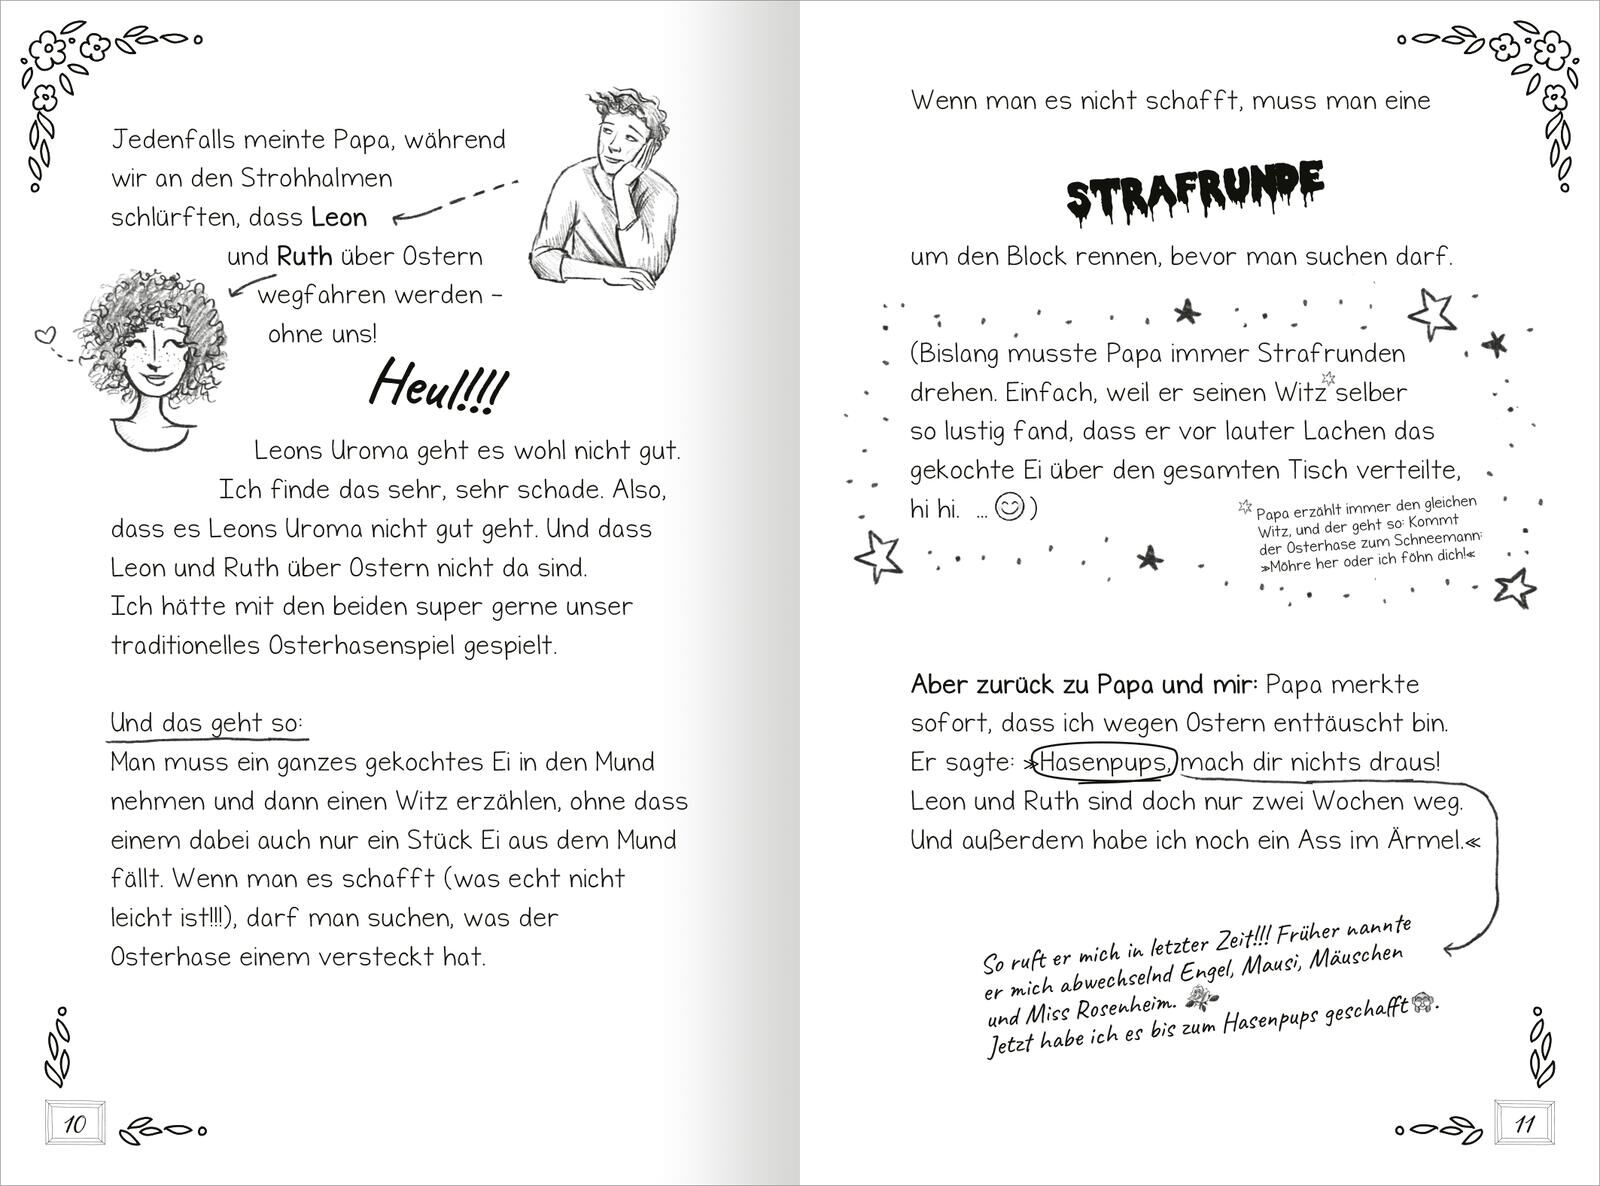 Jedenfalls meinte Papa, während
wir an den Strohhalmen
schlürften, dass Leon
und Ruth über Ostern
wegfahren werden –
ohne uns!
Heul!!!!
Leons Uroma geht es wohl nicht gut.
Ich finde das sehr, sehr schade. Also,
dass es Leons Uroma nicht gut geht. Und dass
Leon und Ruth über Ostern nicht da sind.
Ich hätte mit den beiden super gerne unser
traditionelles Osterhasenspiel gespielt.
Und das geht so:
Man muss ein ganzes gekochtes Ei in den Mund
nehmen und dann einen Witz erzählen, ohne dass
einem dabei auch nur ein Stück Ei aus dem Mund
fällt. Wenn man es schafft (was echt nicht
leicht ist!!!), darf man suchen, was der
Osterhase einem versteckt hat.
10
Wenn man es nicht schafft, muss man eine
STRAFRUNDE
um den Block rennen, bevor man suchen darf.
(Bislang musste Papa immer Strafrunden
drehen. Einfach, weil er seinen Witz selber
so lustig fand, dass er vor lauter Lachen das
gekochte Ei über den gesamten Tisch verteilte,
hi hi. ... 😊)
Papa erzählt immer den gleichen
Witz, und der geht so: Kommt
der Osterhase zum Schneemann:
»Möhre her oder ich föhn dich!«
Aber zurück zu Papa und mir: Papa merkte
sofort, dass ich wegen Ostern enttäuscht bin.
Er sagte: »Hasenpups, mach dir nichts draus!
Leon und Ruth sind doch nur zwei Wochen weg.
Und außerdem habe ich noch ein Ass im Ärmel.«
So ruft er mich in letzter Zeit!!! Früher nannte
er mich abwechselnd Engel, Mausi, Mäuschen
und Miss Rosenheim. 🌹
Jetzt habe ich es bis zum Hasenpups geschafft 🙈.
11